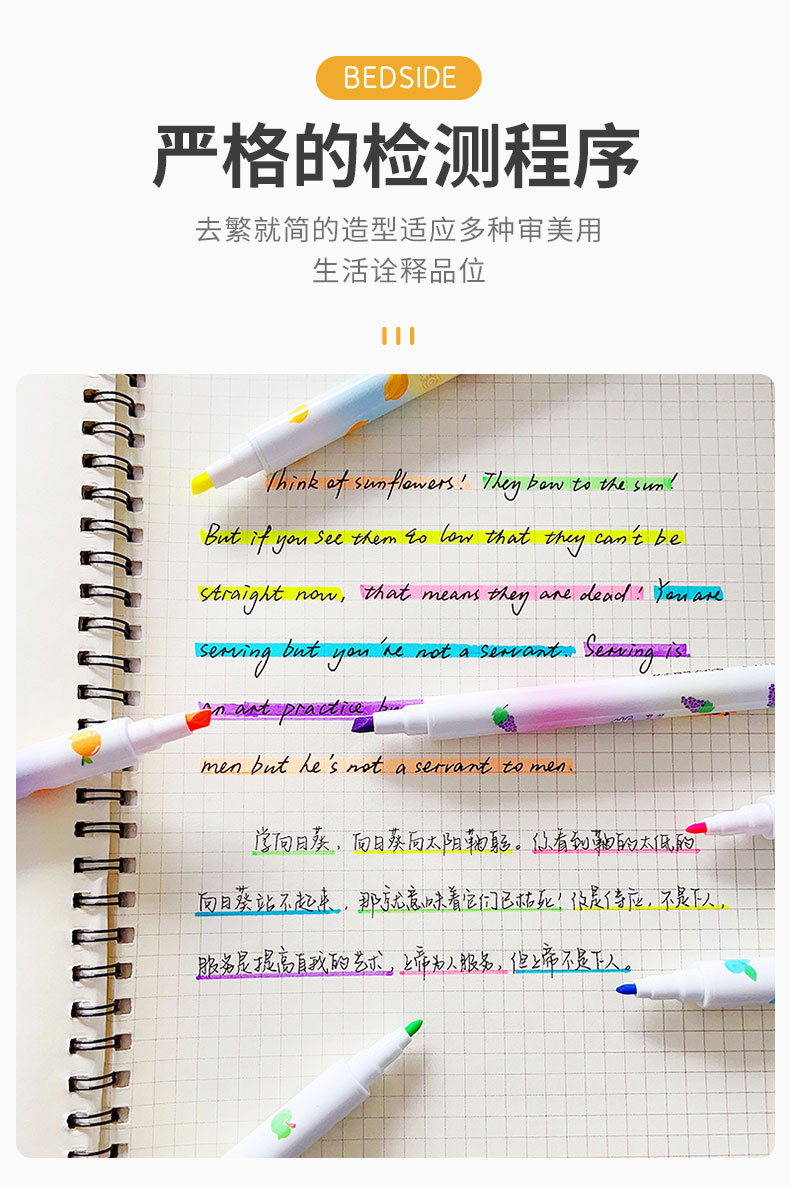 BEDSIDE
严格的检测程序
去繁就简的造型适应多种审美用
生活诠释品位
Think of sunflowers! They bow to the sun!
But if you see them so low that they can't be
straight now, that means they are dead! You are
serving but you're not a servant. Serving is
an art practice
men but he's not a servant to men.
学向日葵，向日葵向太阳鞠躬。你看到鞠的太低的
向日葵站不起来，那就意味着它们已枯死！你是侍应，不是下人，
服务是提高自我的艺术，上帝为人服务，但上帝不是下人。